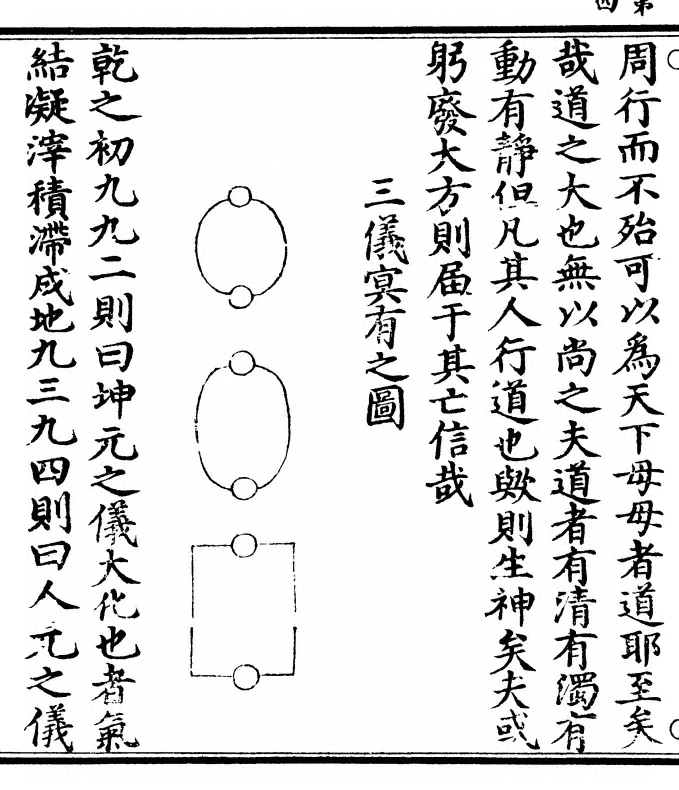 第四
周行而不殆可以為天下母母者道耶至矣
哉道之大也無以尚之夫道者有清有濁有
動有靜但凡其人行道也歟則生神矣夫或
躬廢大方則届于其亡信哉
三儀冥有之圖
乾之初九九二則曰坤元之儀大化也者氣
結凝滓積滯成地九三九四則曰人元之儀